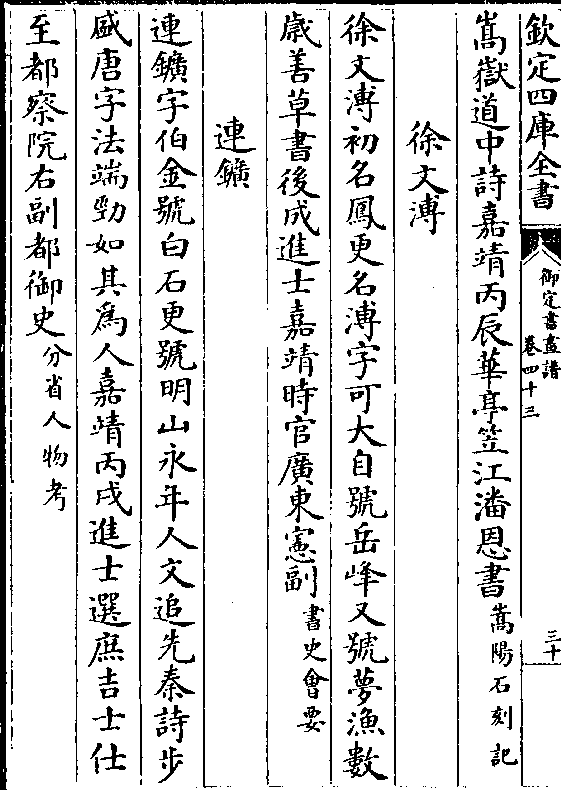 欽定四庫全書
御定書畫譜
卷四十三
三十
嵩嶽道中詩嘉靖丙辰華亭笠江潘恩書嵩陽石刻記
徐文溥
徐文溥初名鳳更名溥字可大自號岳峰又號夢漁數
歲善草書後成進士嘉靖時官廣東憲副書史會要
連鑛
連鑛字伯金號白石更號明山永年人文追先秦詩步
盛唐字法端勁如其為人嘉靖丙戌進士選庶吉士仕
至都察院右副都御史分省人物考